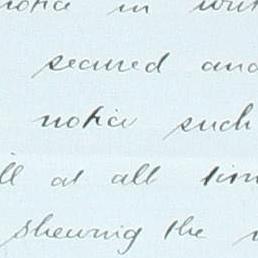 notice in writ
secured and
notice such
ll at all tim
shewing the